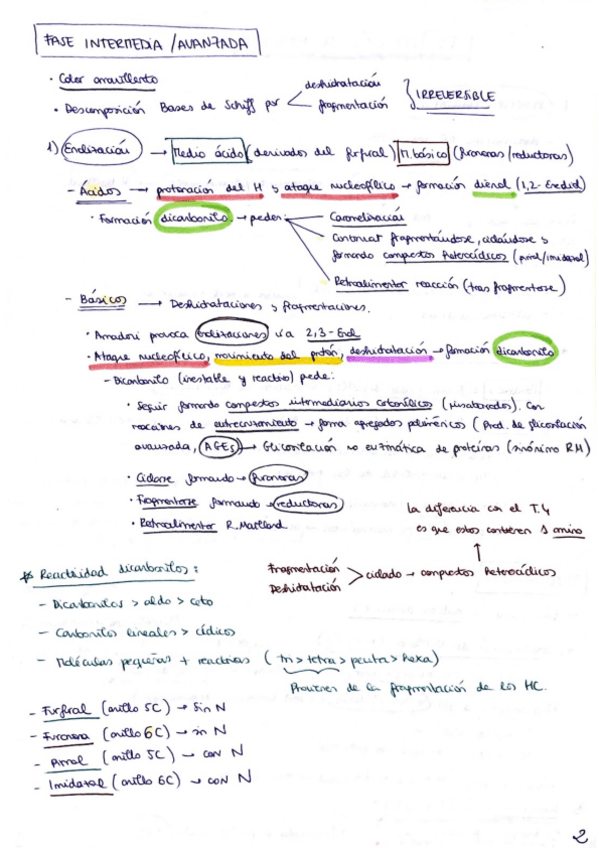 FASE INTERMEDIA / AVANZADA
· Color amarillento
· Descomposición Bases de Schiff por < deshidratación
fragmentación } IRREVERSIBLE
1) Enolización → Medio ácido (derivados del furfural) M. básico (furanonas / reductonas)
- Ácidos → protonación del H y ataque nucleofílico → formación dienol (1,2- Enediol)
· Formación dicarbonilo → peden: Caramelización
Continuar fragmentándose, ciclándose y
formando compuestos heterocíclicos (pirrol/imidazol)
Retroalimentar reacción (tras fragmentarse)
- Básicos → Deshidrataciones y fragmentaciones.
· Amadori provoca enolizaciones vía 2,3-Enol
· Ataque nucleofílico, movimiento del protón, deshidratación → formación dicarbonilo
- Dicarbonilo (inestable y reactivo) pede:
· Seguir formando compuestos intermediarios carbonílicos (insaturados). Con
reacciones de entrecruzamiento → forma agregados poliméricos (Prod. de glicosilación
avanzada, AGEs) → Glicosilación no enzimática de proteínas (sinónimo RM)
· Ciclarse formando → furanonas
· Fragmentarse formando → reductonas
· Retroalimentar R. Maillard.
La diferencia con el T.4
es que estos contienen 1 amino
↑
Fragmentación
Deshidratación > ciclado → compuestos heterocíclicos
* Reactividad dicarbonilos:
- Dicarbonilos > aldo > ceto
- Carbonilos lineales > cíclicos
- Moléculas pequeñas + reactivas (tri > tetra > penta > hexa)
Provienen de la fragmentación de los HC.
- Furfural (anillo 5C) → Sin N
- Furanona (anillo 6C) → sin N
- Pirrol (anillo 5C) → con N
- Imidazol (anillo 6C) → con N
2